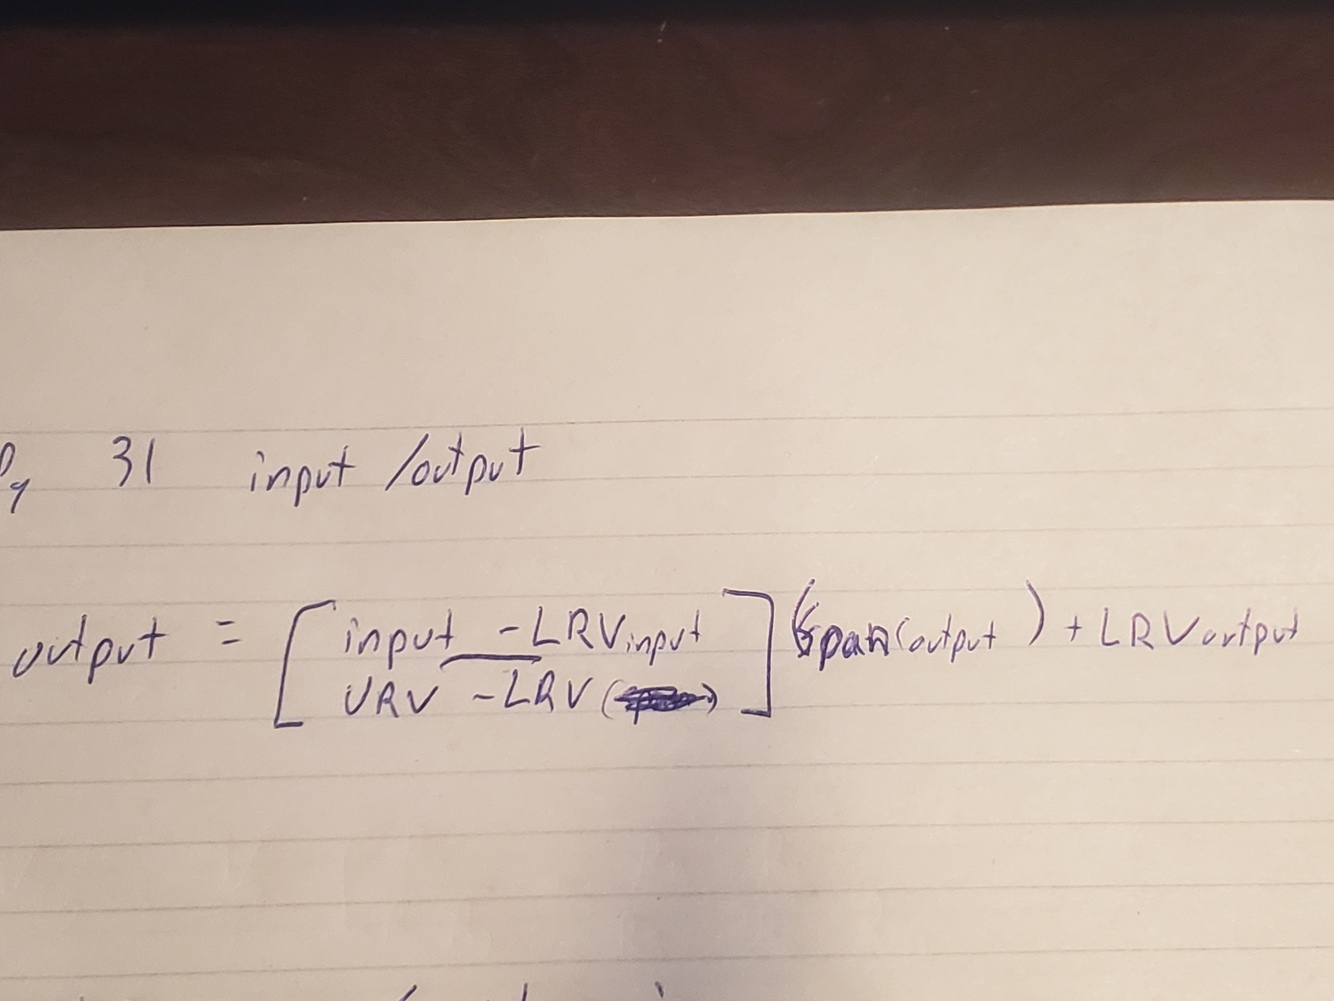 Pg 31 input /output
output = [ input - LRVinput
URV - LRV ( ) ] (span(output ) + LRVoutput